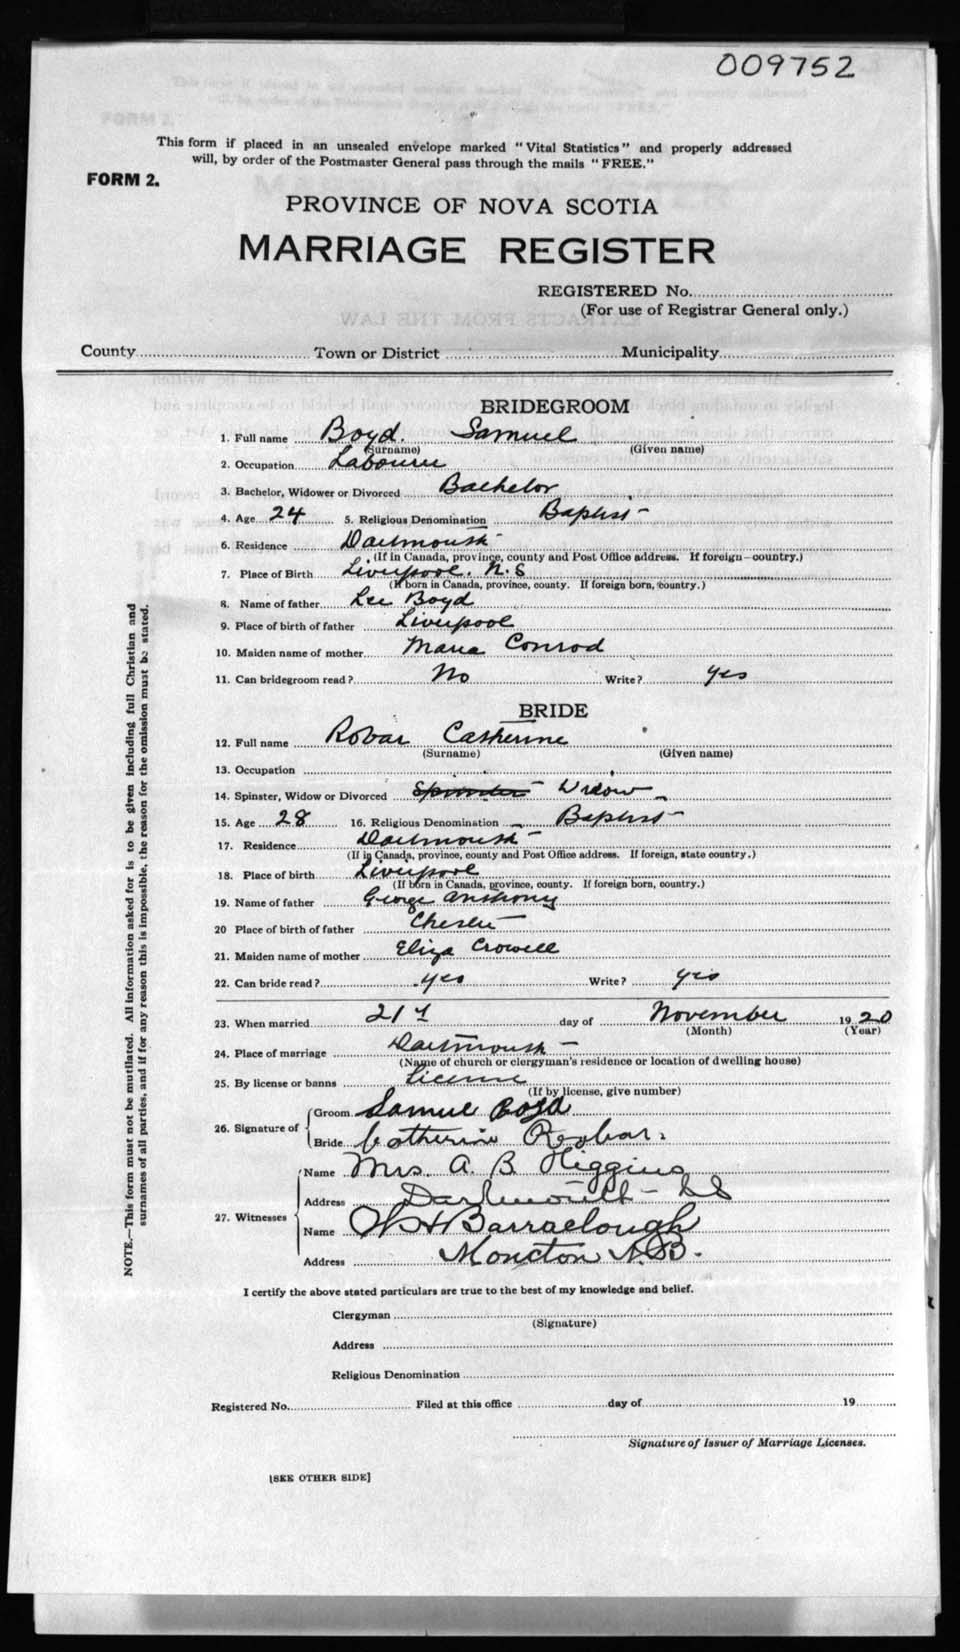 009752
This form if placed in an unsealed envelope marked "Vital Statistics" and properly addressed
will, by order of the Postmaster General pass through the mails "FREE."
FORM 2.
PROVINCE OF NOVA SCOTIA
MARRIAGE REGISTER
REGISTERED No.
(For use of Registrar General only.)
County Town or District Municipality
BRIDEGROOM
1. Full name Boyd. Samuel
(Surname) (Given name)
2. Occupation Labourer
3. Bachelor, Widower or Divorced Bachelor
4. Age 24 5. Religious Denomination Baptist
6. Residence Dartmouth
(If in Canada, province, county and Post Office address. If foreign—country.)
7. Place of Birth Liverpool. N.S
(If born in Canada, province, county. If foreign born, country.)
8. Name of father Lee Boyd
9. Place of birth of father Liverpool
10. Maiden name of mother Maria Conrod
11. Can bridegroom read? No Write? yes
BRIDE
12. Full name Robar Catherine
(Surname) (Given name)
13. Occupation
14. Spinster, Widow or Divorced Spinster Widow
15. Age 28 16. Religious Denomination Baptist
17. Residence Dartmouth
(If in Canada, province, county and Post Office address. If foreign, state country.)
18. Place of birth Liverpool
(If born in Canada, province, county. If foreign born, country.)
19. Name of father George Anthony
20 Place of birth of father Chester
21. Maiden name of mother Eliza Crowell
22. Can bride read? yes Write? yes
23. When married 21st day of November 1920
(Month) (Year)
24. Place of marriage Dartmouth
(Name of church or clergyman's residence or location of dwelling house)
25. By license or banns License
(If by license, give number)
26. Signature of Groom Samuel Boyd
Bride Catherine Robar.
27. Witnesses Name Mrs. A. B Higgins
Address Dartmouth
Name W H Barraclough
Address Moncton N.B.
I certify the above stated particulars are true to the best of my knowledge and belief.
Clergyman
(Signature)
Address
Religious Denomination
Registered No. Filed at this office day of 19
Signature of Issuer of Marriage Licenses.
[SEE OTHER SIDE]
NOTE.—This form must not be mutilated. All information asked for is to be given including full Christian and
surnames of all parties, and if for any reason this is impossible, the reason for the omission must be stated.